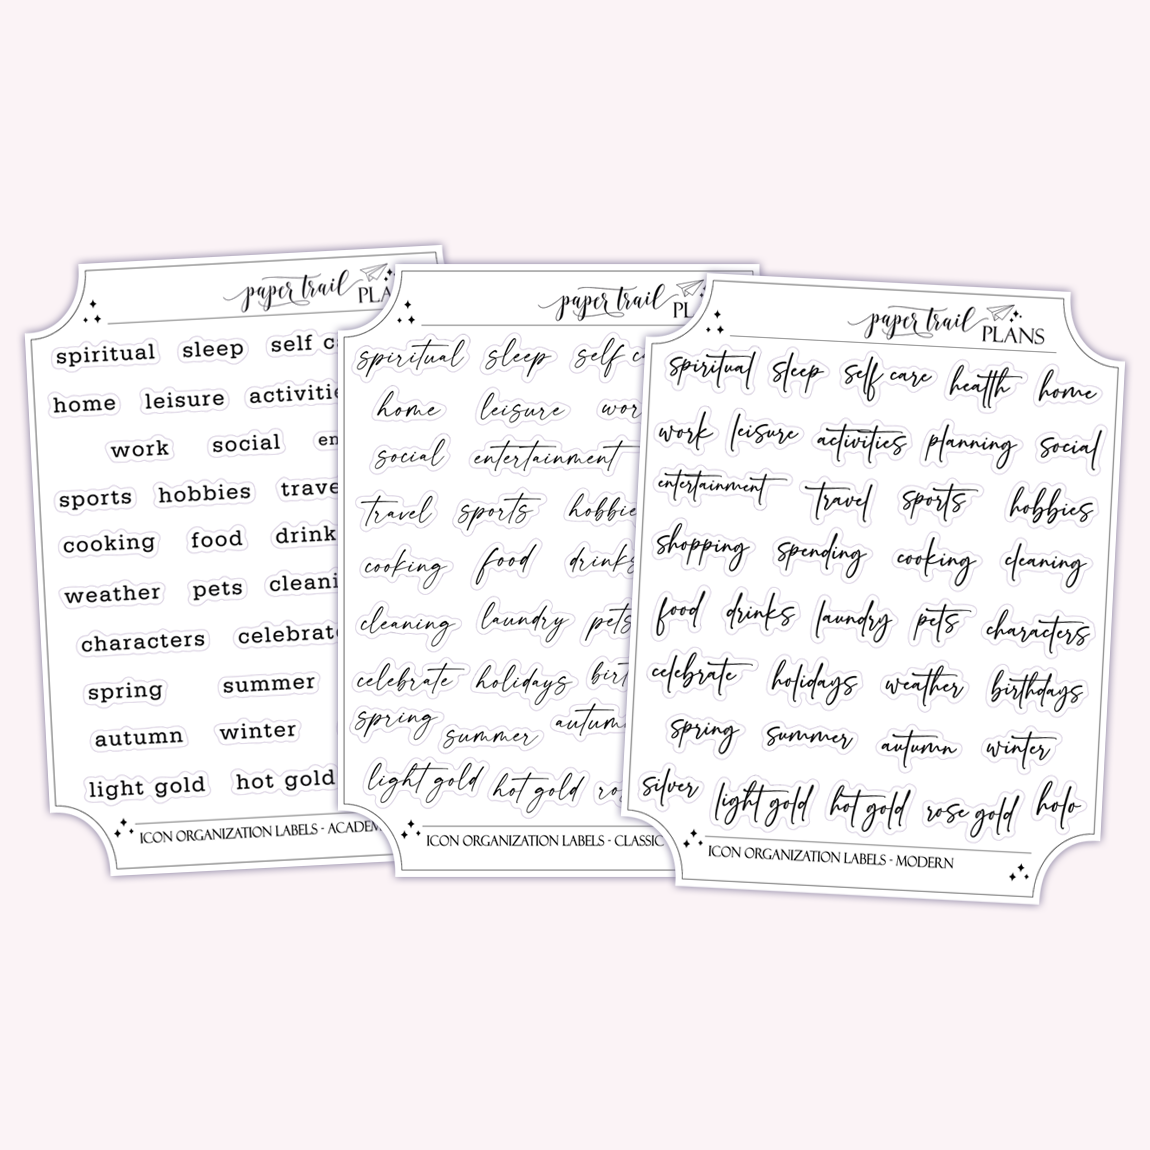 paper trail
spiritual sleep self
home leisure
work social
sports hobbies
cooking food drink
weather pets
characters
spring summer
autumn winter
light gold hot gold
ICON ORGANIZATION LABELS -
paper trail
spiritual sleep self
home leisure
social entertainment
travel sports
cooking food drinks
cleaning laundry pets
celebrate holidays
spring summer
light gold hot gold
ICON ORGANIZATION LABELS - CLASSIC
paper trail
PLANS
spiritual sleep self care health home
work leisure activities planning social
entertainment travel sports hobbies
shopping spending cooking cleaning
food drinks laundry pets characters
celebrate holidays weather birthdays
spring summer autumn winter
silver light gold hot gold rose gold holo
ICON ORGANIZATION LABELS - MODERN